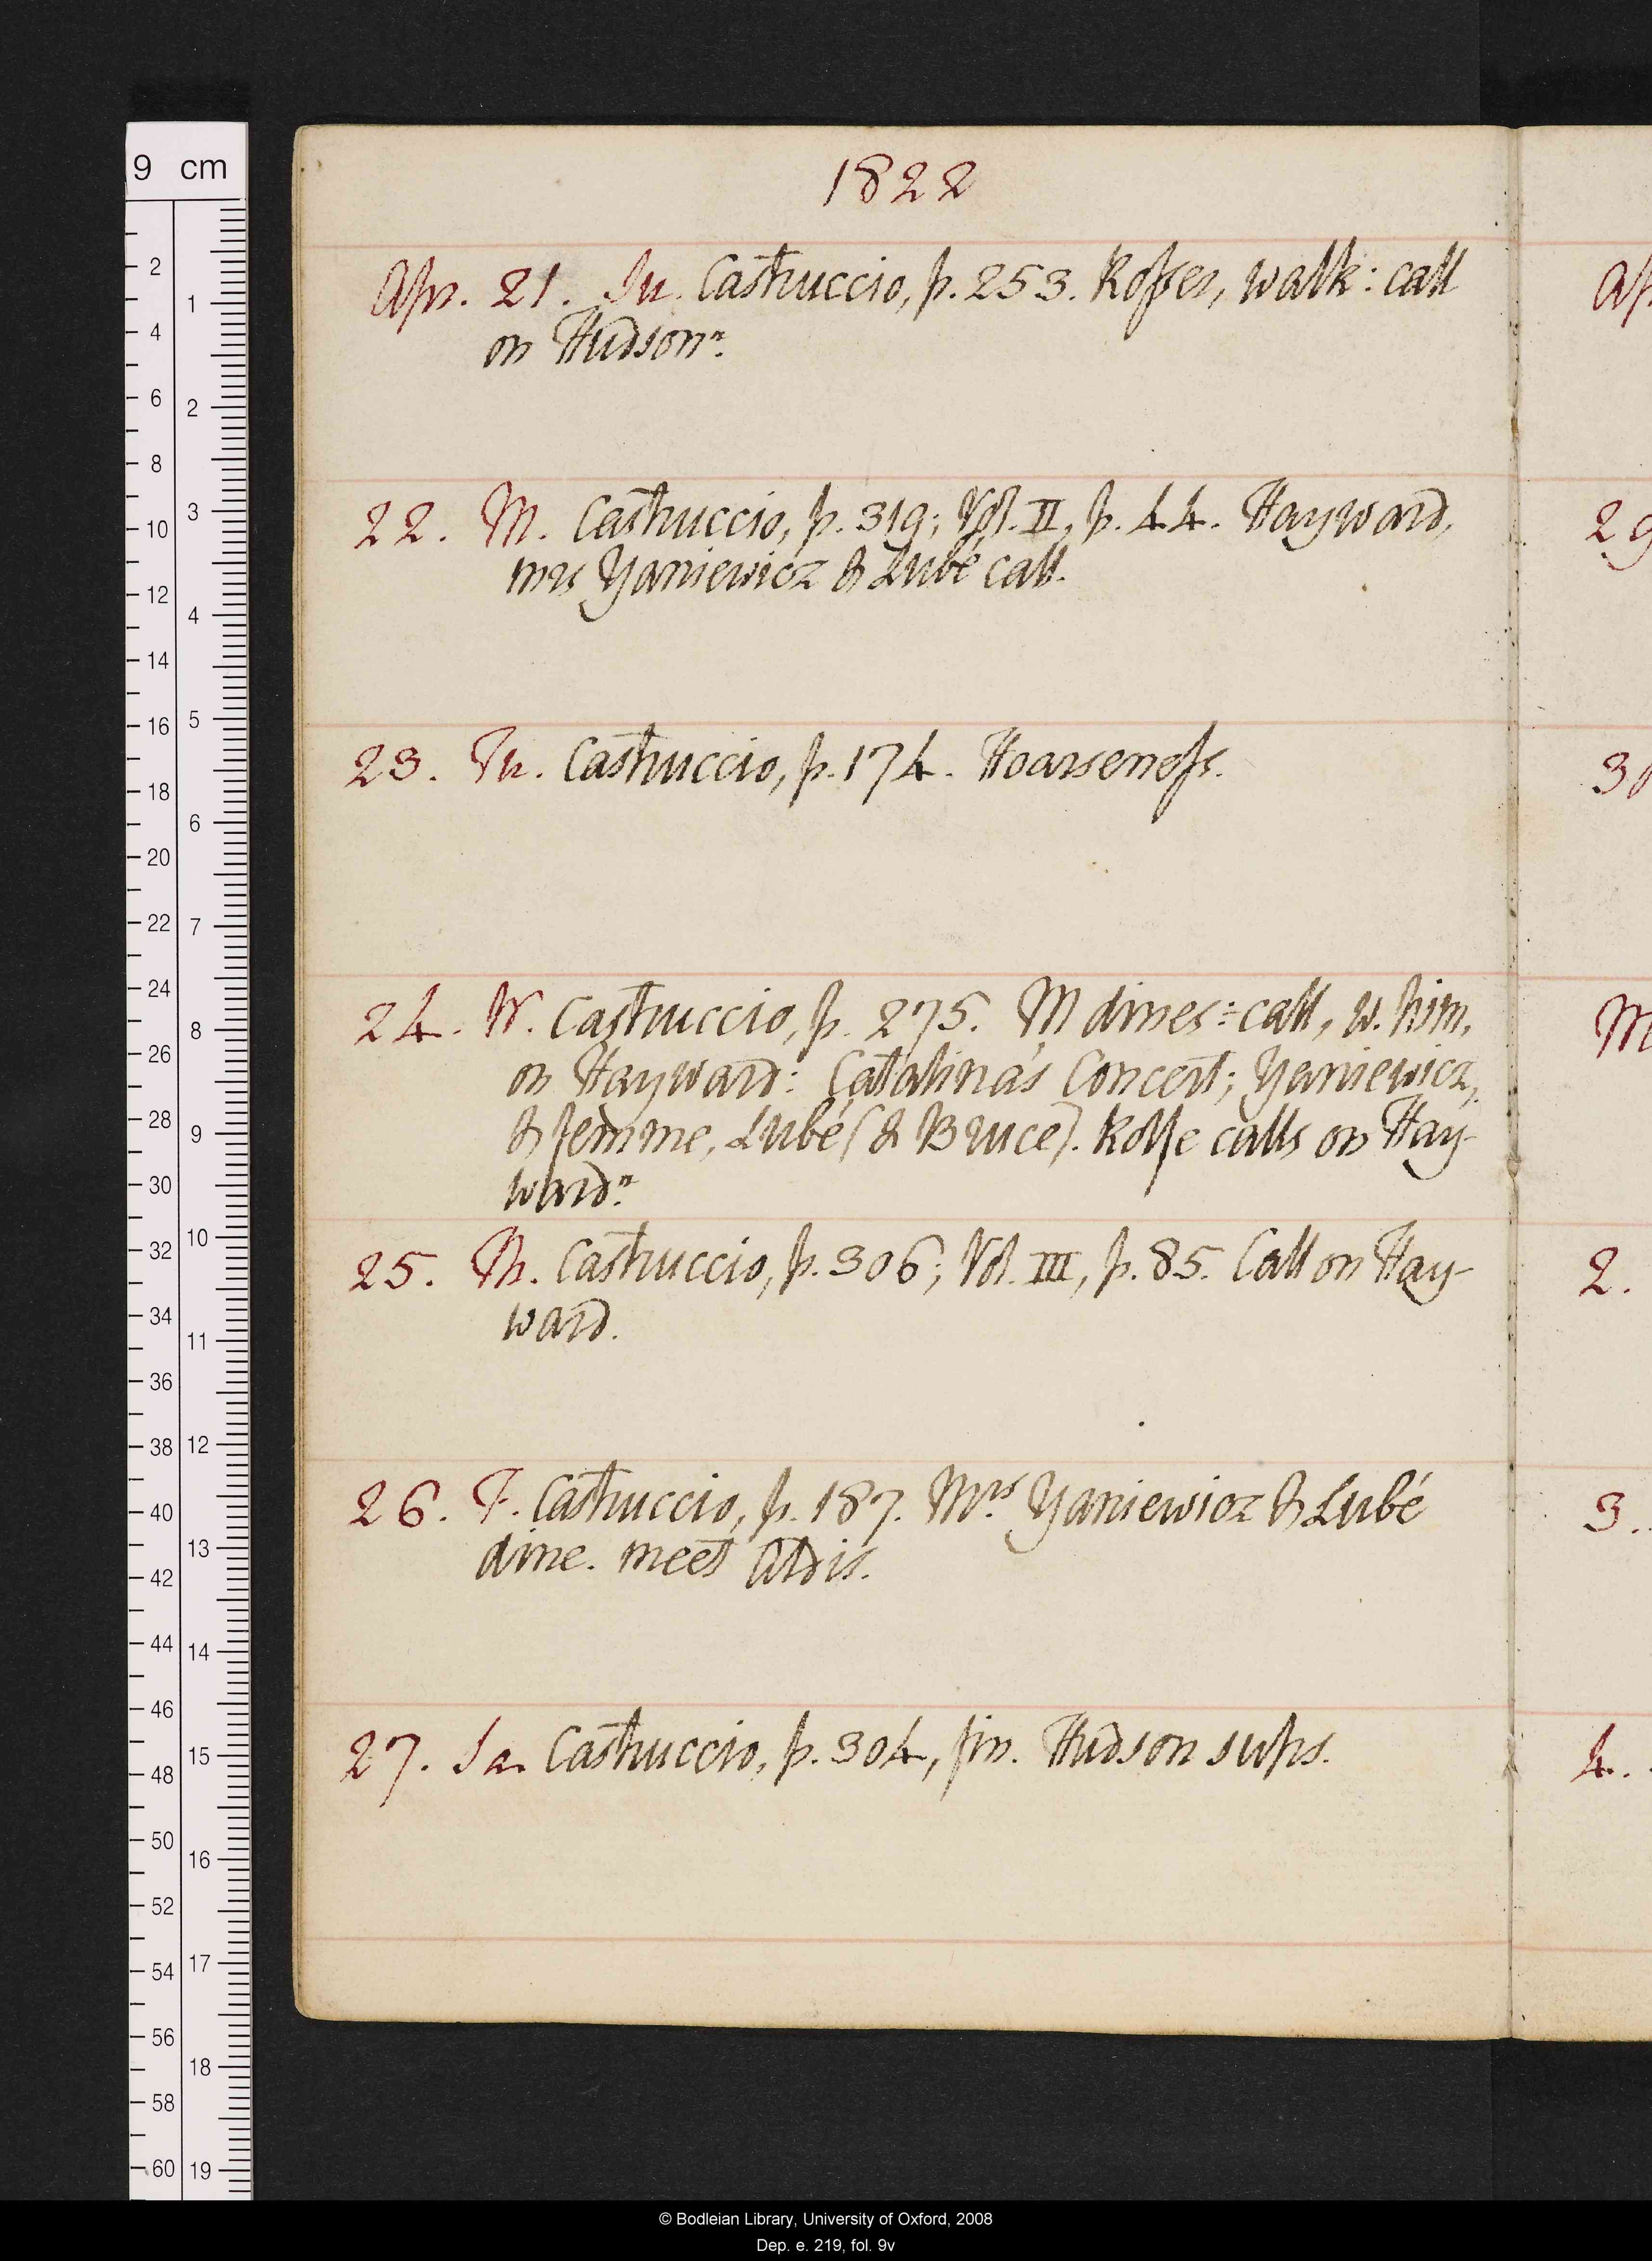 1822
Apr. 21. Su. Castruccio, p. 253. Rosser, walk: call
on Hudson n.
22. M. Castruccio, p. 319; Vol. II, p. 44. Hayward,
mrs Yaniewicz & Lubé call.
23. Tu. Castruccio, p. 174. Hoarseness.
24. W. Castruccio, p. 275. M dines: call, w. him,
on Hayward: Catalina's Concert; Yaniewicz,
& femme, Lubé (& Bruce). Rolfe calls on Hay-
ward n.
25. Th. Castruccio, p. 306; Vol. III, p. 85. Call on Hay-
ward.
26. F. Castruccio, p. 187. Mrs Yaniewicz & Lubé
dine. meet Aldis.
27. Sa. Castruccio, p. 304, fin. Hudson sups.
Ap
29
30
M
2.
3.
4.
9 cm
2 4 6 8 10 12 14 16 18 20 22 24 26 28 30 32 34 36 38 40 42 44 46 48 50 52 54 56 58 60
1 2 3 4 5 6 7 8 9 10 11 12 13 14 15 16 17 18 19
© Bodleian Library, University of Oxford, 2008
Dep. e. 219, fol. 9v